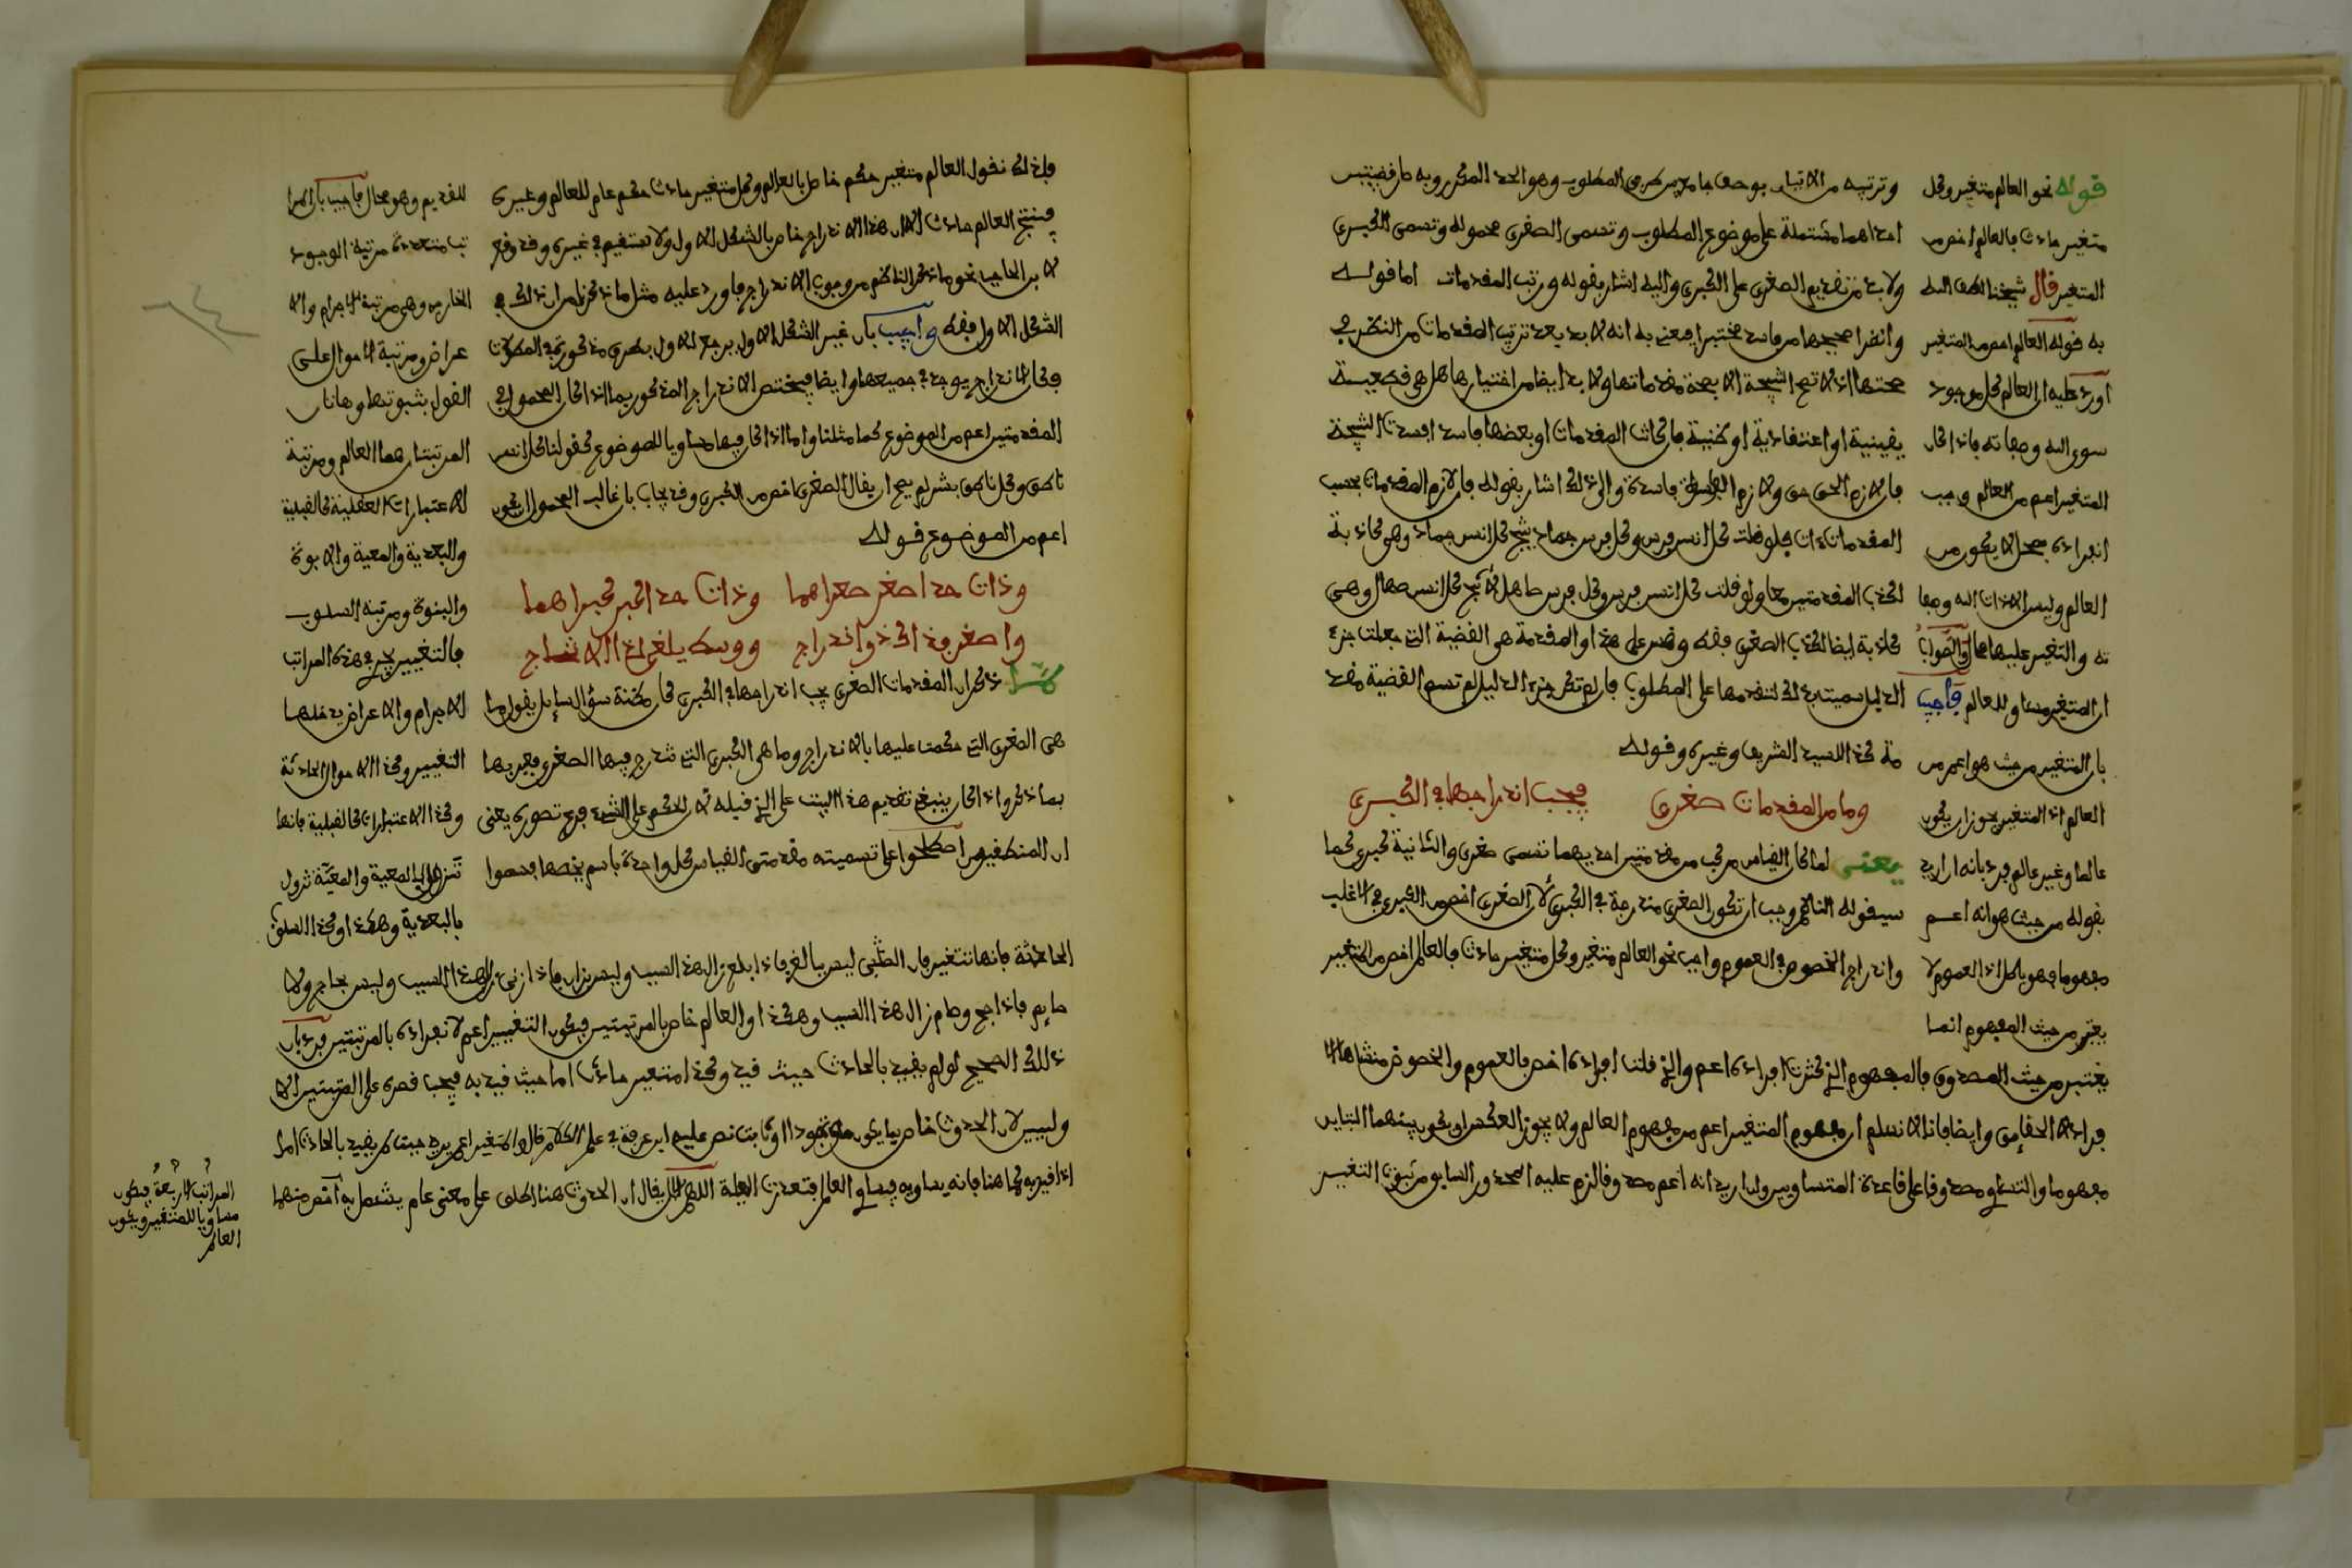 وترتيبه من الاتيان بوصف جامع بين طرفي المطلوب وهو الحد المكرر وبه صار قضيتين
احداهما مشتملة على موضوع المطلوب وتسمى الصغرى محموله وتسمى الكبرى
ولابد من تقديم الصغرى على الكبرى واليه اشار بقوله ورتب المقدمات اما قوله
وانظرا صحيحها من فاسد مختبرا فيعني به انه لا بد بعد ترتيب المقدمات من النظر في
صحتها اذ لا تصح النتيجة الا بصحة مقدماتها ولا بد ايضا من اختبارها هل هي قطعية
يقينية او اعتقادية او ظنية فان كانت المقدمات او بعضها فاسد افسدت النتيجة
فان لازم الحق حق ولازم الباطل فاسدة والى ذلك اشار بقوله فان لازم المقدمات بحسب
المقدمات ءات فلو قلت كل انس فرس وكل فرس جماد ينتج كل انس جماد وهي كاذبة
لكذب المقدمتين معا ولو قلت كل انس فرس وكل فرس صاهل لانتج كل انس صهال وهي
كاذبة ايضا لكذب الصغرى فقط وقس على هذا والمقدمة هي القضية التي جعلت جزء
الدليل سميت بذلك لتقدمها على المطلوب فان لم تكن جزء الدليل لم تسم القضية مقد
مة كذا للسيد الشريف وغيره وقوله
وما من المقدمات صغرى فيجب اندراجها في الكبرى
يعني لما كان القياس مركب من مقدمتين احديهما تسمى صغرى والثانية كبرى كما
سيقوله الناظم وجب ان تكون الصغرى مندرجة في الكبرى لان الصغرى اخص من الكبرى في الاغلب
واندراج الخصوص في العموم واجب نحو العالم متغير وكل متغير حادث فالعالم اخص من المتغير
قوله نحو العالم متغير وكل
متغير حادث فالعالم اخص من
المتغير قال شيخنا لطف الله
به قوله العالم اخص من المتغير
اورد عليه ان العالم كل موجود
سوى الله وصفاته فاذا كان
المتغير اعم من العالم وجب
انفراده بمحل لا يكون من
العالم وليس الا ذات الله وصفا
ته والتغير عليها محال والصواب
ان المتغير مساو للعالم فاجيب
بان المتغير من حيث هو اعم من
العالم اذ المتغير يجوز ان يكون
عالما وغير عالم فرد بانه ان اريد
بقوله من حيث هو انه اعم
مفهوما فهو باطل اذ العموم لا
يعتبر من حيث المفهوم انما
يعتبر من حيث المصدوق فالمفهوم الذي كثرت افراده اعم والذي قلت افراده اخص فالعموم والخصوص منشاهما الا
فراد لا الحقايق وايضا فانا لا نسلم ان مفهوم المتغير اعم من مفهوم العالم ولا يجوز العكس ان يكون بينهما التباين
مفهوما والتساوي مصدوقا على قاعدة المتساويين وان اريد انه اعم مصدوقا لزم عليه المحذور السابق من ثبوت التغير
فاذلك نقول العالم متغير حكم خاص بالعالم وكل متغير حادث حكم عام للعالم وغيره
فينتج العالم حادث لاكن هذا الاندراج خاص بالشكل الاول ولا يستقيم في غيره وقد وقع
لابن الحاجب نحو ما ذكر الناظم من وجوب الاندراج فاورد عليه مثل ما ذكرنا من ان ذلك في
الشكل الاول فقط واجيب بان غير الشكل الاول يرجع للاول بطرق مذكورة في المطولات
فكان الاندراج يوجد في جميعها وايضا فيختص الاندراج المذكور بما اذا كان المحمول في
المقدمتين اعم من الموضوع كما مثلنا واما اذا كان فيها مساويا للموضوع كقولنا كل انس
ناطق وكل ناطق بشر لم يصح ان يقال الصغرى اخص من الكبرى وقد يجاب بان غالب المحمول ان يكون
اعم من الموضوع قوله
وذات حد اصغر صغراهما وذات حد اكبر كبراهما
واصغر فذاك ذو اندراج ووسط يلغى لدى الانتاج
لما ذكر ان المقدمات الصغرى يجب اندراجها في الكبرى كان مظنة سؤال السايل بقوله ما
هي الصغرى التي حكمت عليها بالاندراج وما هي الكبرى التي تندرج فيها الصغرى فعرفها
بما ذكر واذا كان ينبغي تقديم هذا البيت على الذي قبله لان الحكم على الشيء فرع تصوره يعني
ان المنطقيين اصطلحوا على تسميته مقدمتي القياس كل واحدة باسم يخصها فسموا
للقديم وهو محال فاجيب بان المرا
تب متعددة مرتبة الوجود
الخارجي وهي مرتبة الاجرام والا
عراض ومرتبة الاحوال على
القول بثبوتها وهاتان
المرتبتان هما العالم ومرتبة
الاعتبارات العقلية كالقبلية
والبعدية والمعية والابوة
والبنوة ومرتبة السلوب
فالتغيير يجري في هذه المراتب
الاجرام والاعراض يدخلها
التغيير وكذا الاحوال الحادثة
وكذا الاعتبارات كالقبلية فانها
تتزول بالمعية والمعية تزول
بالبعدية وهكذا وكذا السلوب
الحادثة فانها تتغير فان الصبي ليس بالغ فاذا بلغ زال هذا السلب وليس بزان فاذا زنى زال هذا السلب وليس بحاج ولا
صايم فاذا حج وصام زال هذا السلب وهكذا والعالم خاص بالمرتبتين فيكون التغيير اعم لانفراده بالمرتبتين فرد بان
ذلك الصحيح لو لم يقيد بالحادث حيث قيد وكذا متغير حادث اما حيث قيد به فيجب قصره على المرتبتين الا
وليين لان الحدوث خاص بما يكون موجودا او ثابت نص عليه ابن عرفة في علم الكلام قال والمتغير اعم يريد حيث لم يقيد بالحادث اما
اذا قيد به كما هنا فانه يساويه فيساوي العالم فتعددت العلة اللهم الا ان يقال ان الحدوث هنا اطلق على معنى عام يشمل به اخص منهما
المراتب الاربعة فيكون
مساويا للمتغير ويكون
العالم